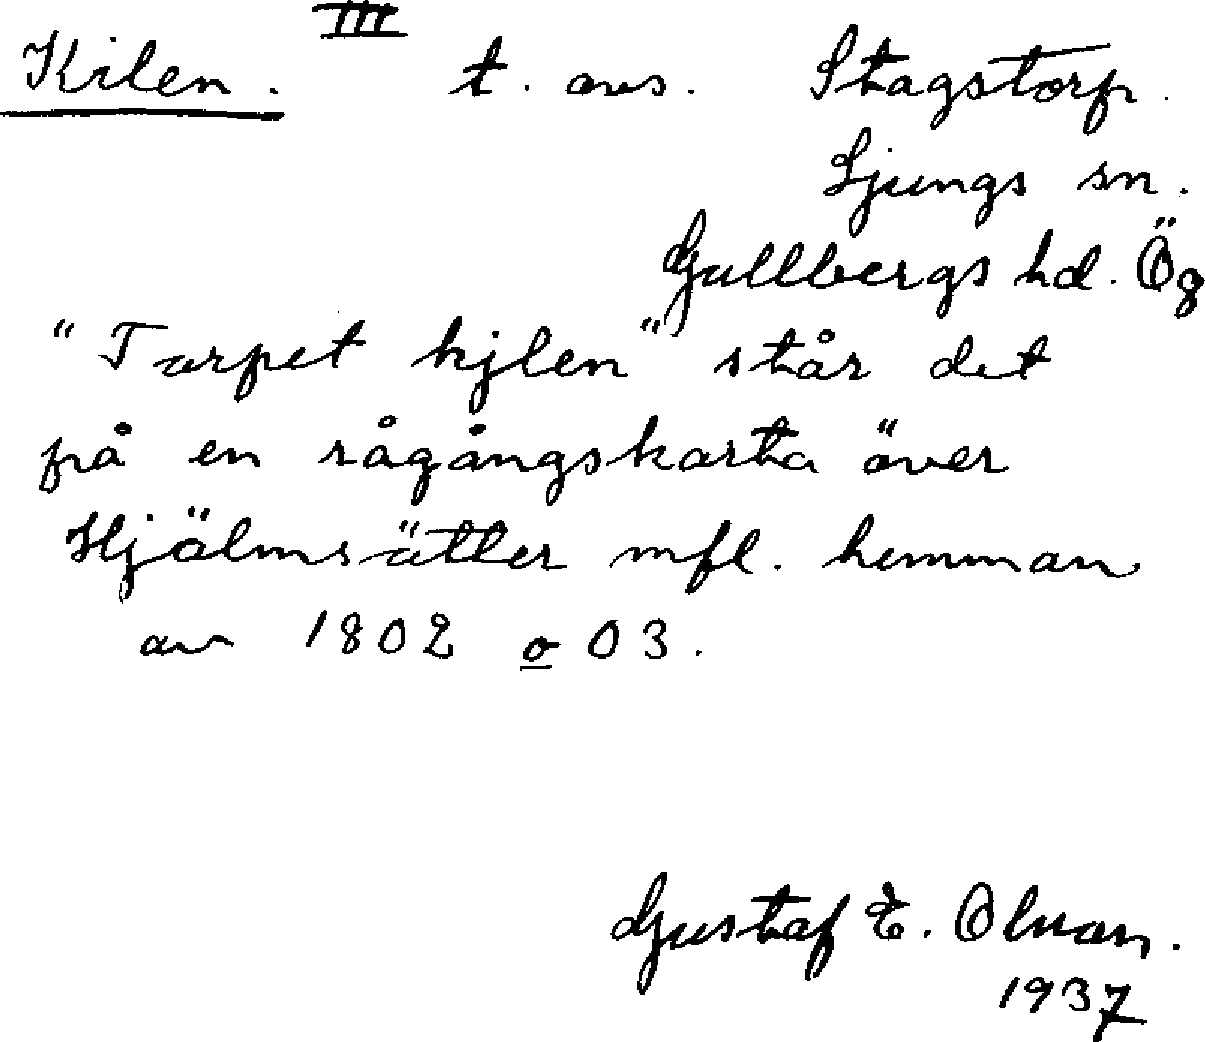 III
Kilen. t. avs. Stagstorp.
Ljungs sn.
Gullbergs hd. Ög
"Torpet kjlen" står det
på en rågångskarta över
Hjälmsätter mfl. hemman
av 1802 o 03.
Gustaf E. Olman.
1937